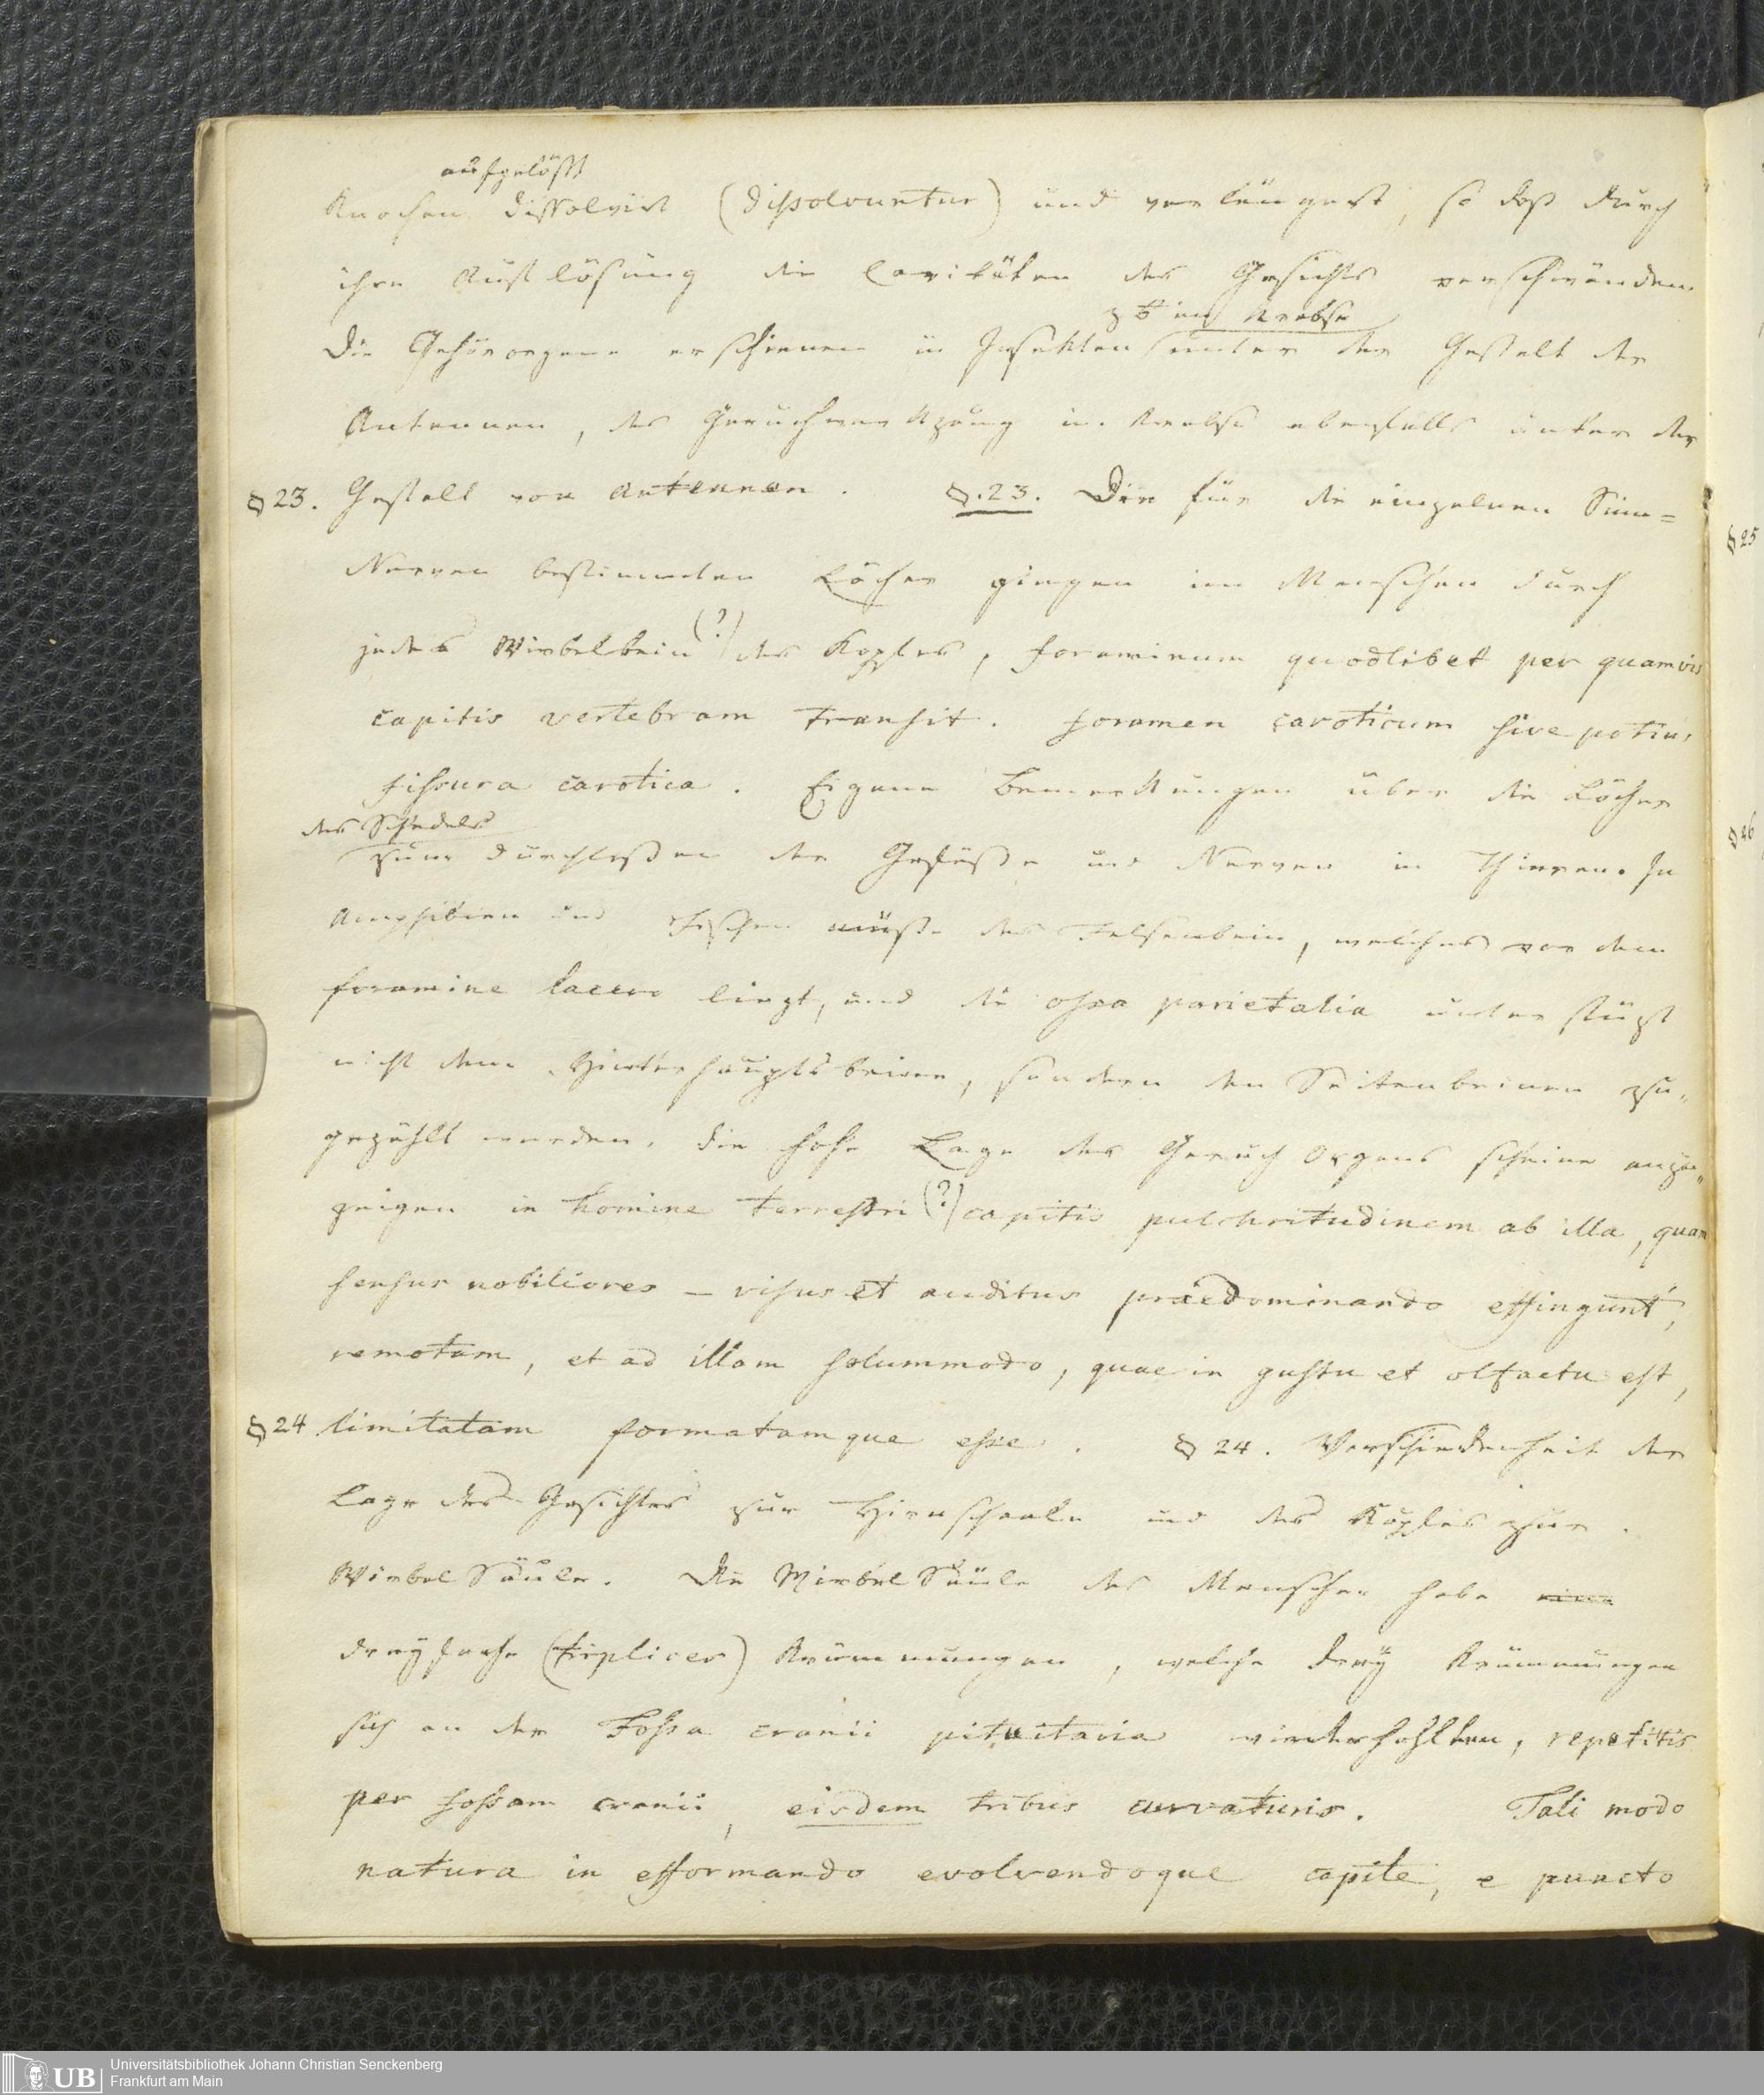 aufgelößt
Knochen dissolvirt (dissolvuntur) und verlängert, so daß durch
ihre Auflösung die Cavitäten des Gesichts verschwänden.
z B im Krebse
Die Gehörorgane erschienen in Insekten unter der Gestalt der
Antennen, das Geruchwerkzeug im Krebse ebenfalls unter der
§ 23. Gestalt von Antennen. §. 23. Die für die einzelnen Sinn=
Nerven bestimmten Löcher gingen im Menschen durch
jedes Wirbelbein (?) des Kopfes, foraminum quodlibet per quamvis
capitis vertebram transit. foramen caroticum sive potius
fissura carotica. Eigene Bemerkungen über die Löcher
des Schedels
zum durchlaßen der Gefäße und Nerven in Thieren. In
Amphibien und Fischen müße das Felsenbein, welches vor dem
foramine lacero liegt, und die ossa parietalia unterstüzt
nicht dem Hinterhauptsbeine, sondern den Seitenbeinen zu„
gezählt werden. Die hohe Lage des Geruch Organs scheine anzu„
zeigen in homine terrestri (?) capitis pulchritudinem ab illa, quam
sensus nobiliores – visus et auditus praedominando effingunt,
remotam, et ad illam solummodo, quae in gustu et olfactu est,
§ 24 limitatam formatamque esse. § 24. Verschiedenheit der
Lage des Gesichtes zur Hirnschaale und des Kopfes zur
Wirbel Säule. Die Wirbel Säule des Menschen habe eine
dreyfache (triplices) Krümmungen, welche drey Krümmungen
sich an der Fossa cranii pituitaria wiederhohlten, repetitis
per fossam cranii, eisdem tribus curvaturis. Tali modo
natura in efformando evolvendoque capite, e puncto
§ 25
§ 26
UB
Universitätsbibliothek Johann Christian Senckenberg
Frankfurt am Main